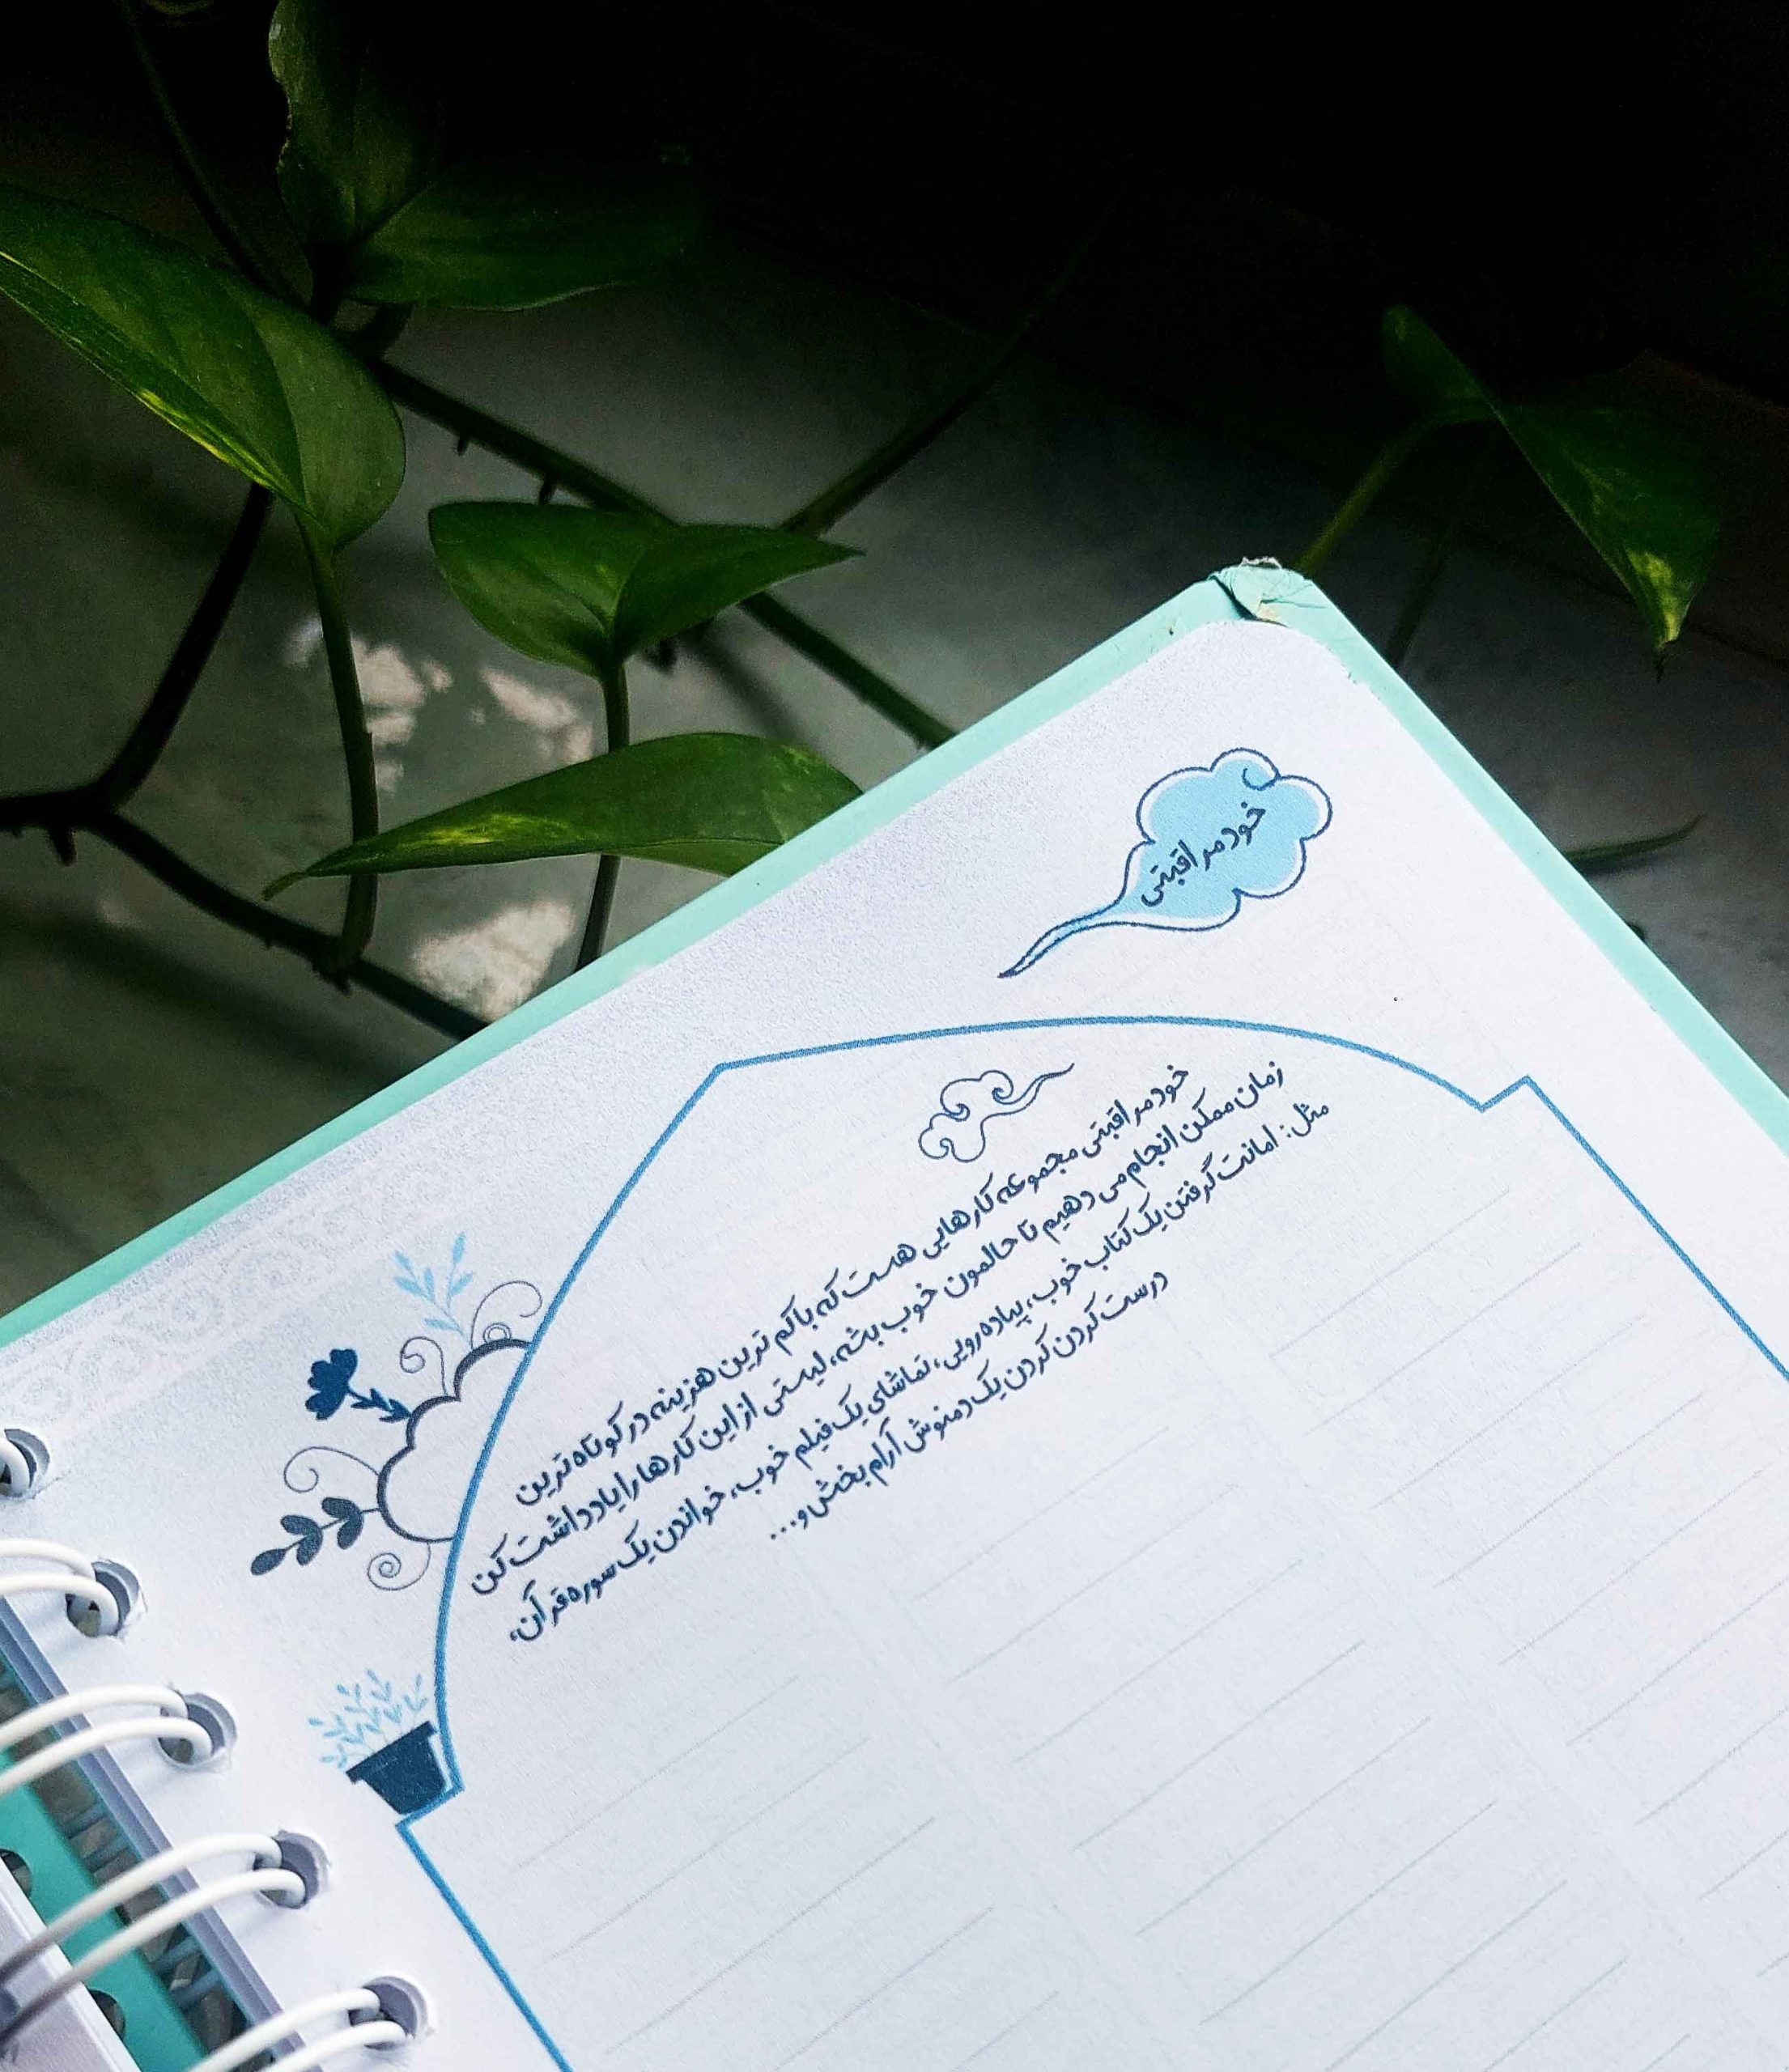 خود مراقبتی
خود مراقبتی مجموعه کارهایی هست که با کم ترین هزینه در کوتاه ترین
زمان ممکن انجام می دهیم تا حالمون خوب بشه، لیستی از این کارها را یادداشت کن
مثل: امانت گرفتن یک کتاب خوب، پیاده رویی، تماشای یک فیلم خوب، خواندن یک سوره قرآن،
درست کردن کردن یک دمنوش آرام بخش و...